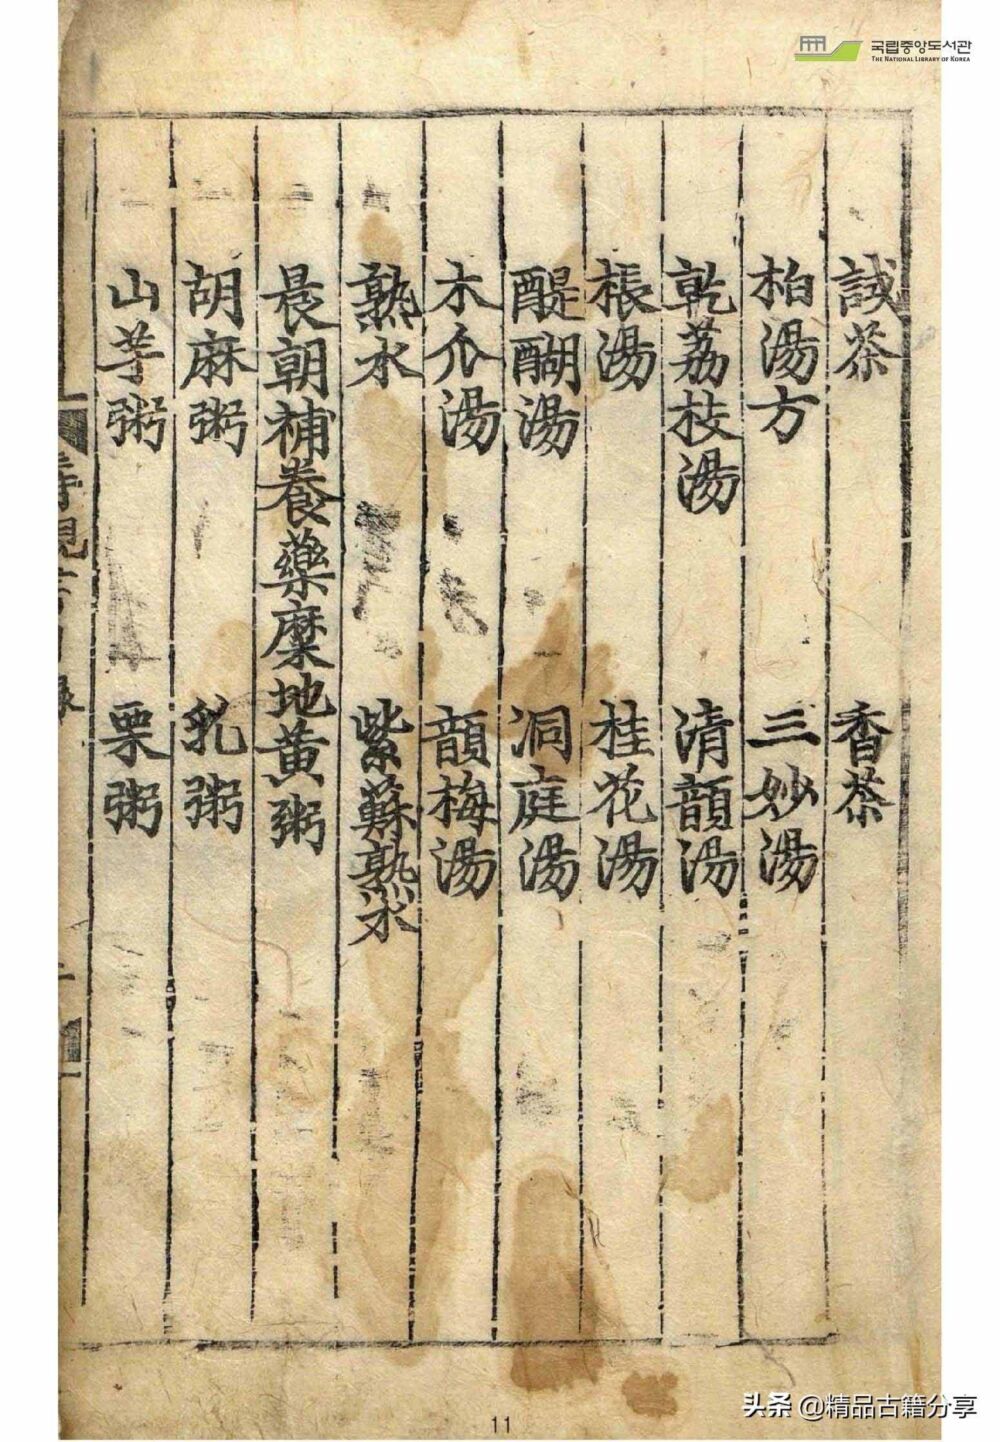 국립중앙도서관
THE NATIONAL LIBRARY OF KOREA
試茶 香茶
柏湯方 三妙湯
乾荔枝湯 清韻湯
棖湯 桂花湯
醍醐湯 洞庭湯
木瓜湯 韻梅湯
熟水 紫蘇熟水
晨朝補養藥糜地黃粥
胡麻粥 乳粥
山芋粥 栗粥
11
头条 @精品古籍分享